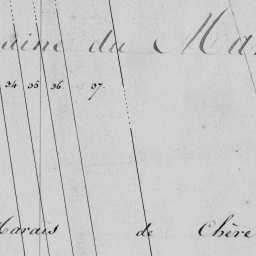 aine du Ma
34 35 36 37.
Marais de Chère